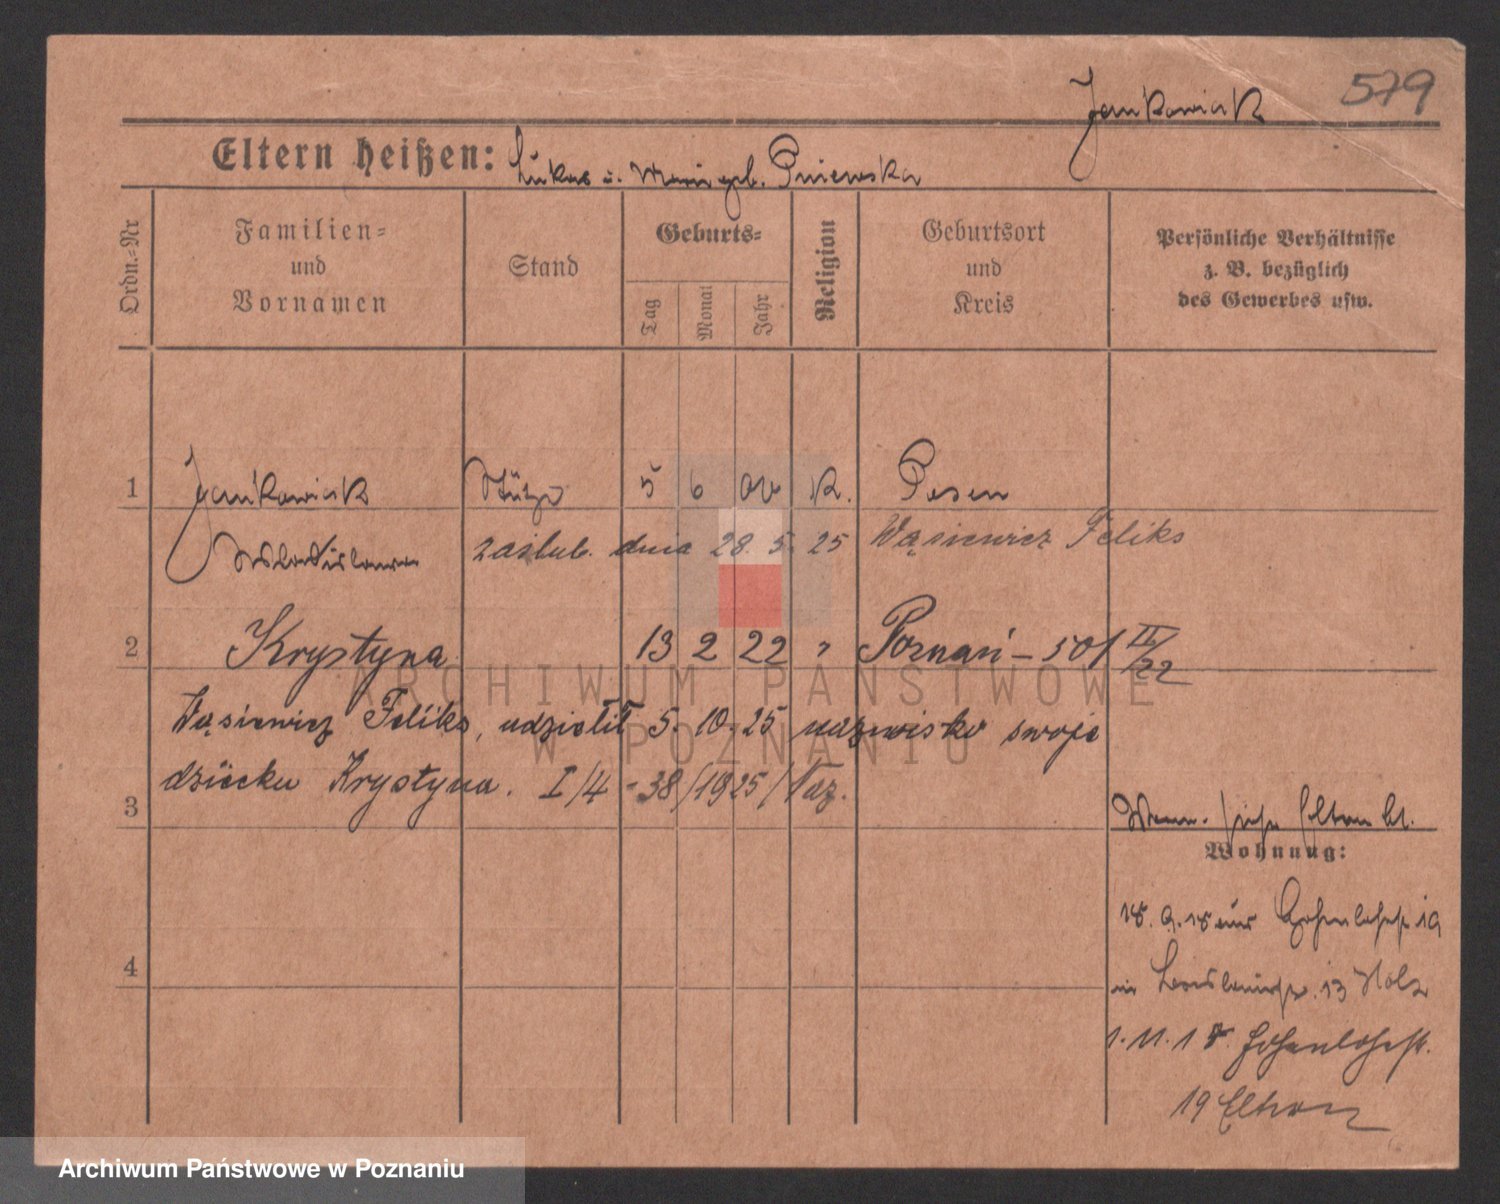 579
Jankowiak
Eltern heißen: Lukas u. Marie geb. Pniewska
Ordn.-Nr
Familien- und Vornamen
Stand
Geburts-
Tag
Monat
Jahr
Religion
Geburtsort und Kreis
Persönliche Verhältnisse z. B. bezüglich des Gewerbes usw.
1 Jankowiak Stütze 5 6 00 K. Posen
Wladislawa zaślub. dnia 28. 5. 25 Wąsiewicz Feliks
2 Krystyna 13 2 22 " Poznań – 501 II/22
Wąsiewicz Feliks, udzielił 5. 10. 25 nazwisko swoje
dziecku Krystyna. I/4 - 38/1925/Taz.
3
siehe Eltern bl.
Wohnung:
18. 9. 18 aus Hohenlohestr 19
4
in 13 Holz
1. 11. 18. Hohenlohestr.
19 Eltern
ARCHIWUM PAŃSTWOWE
W POZNANIU
Archiwum Państwowe w Poznaniu